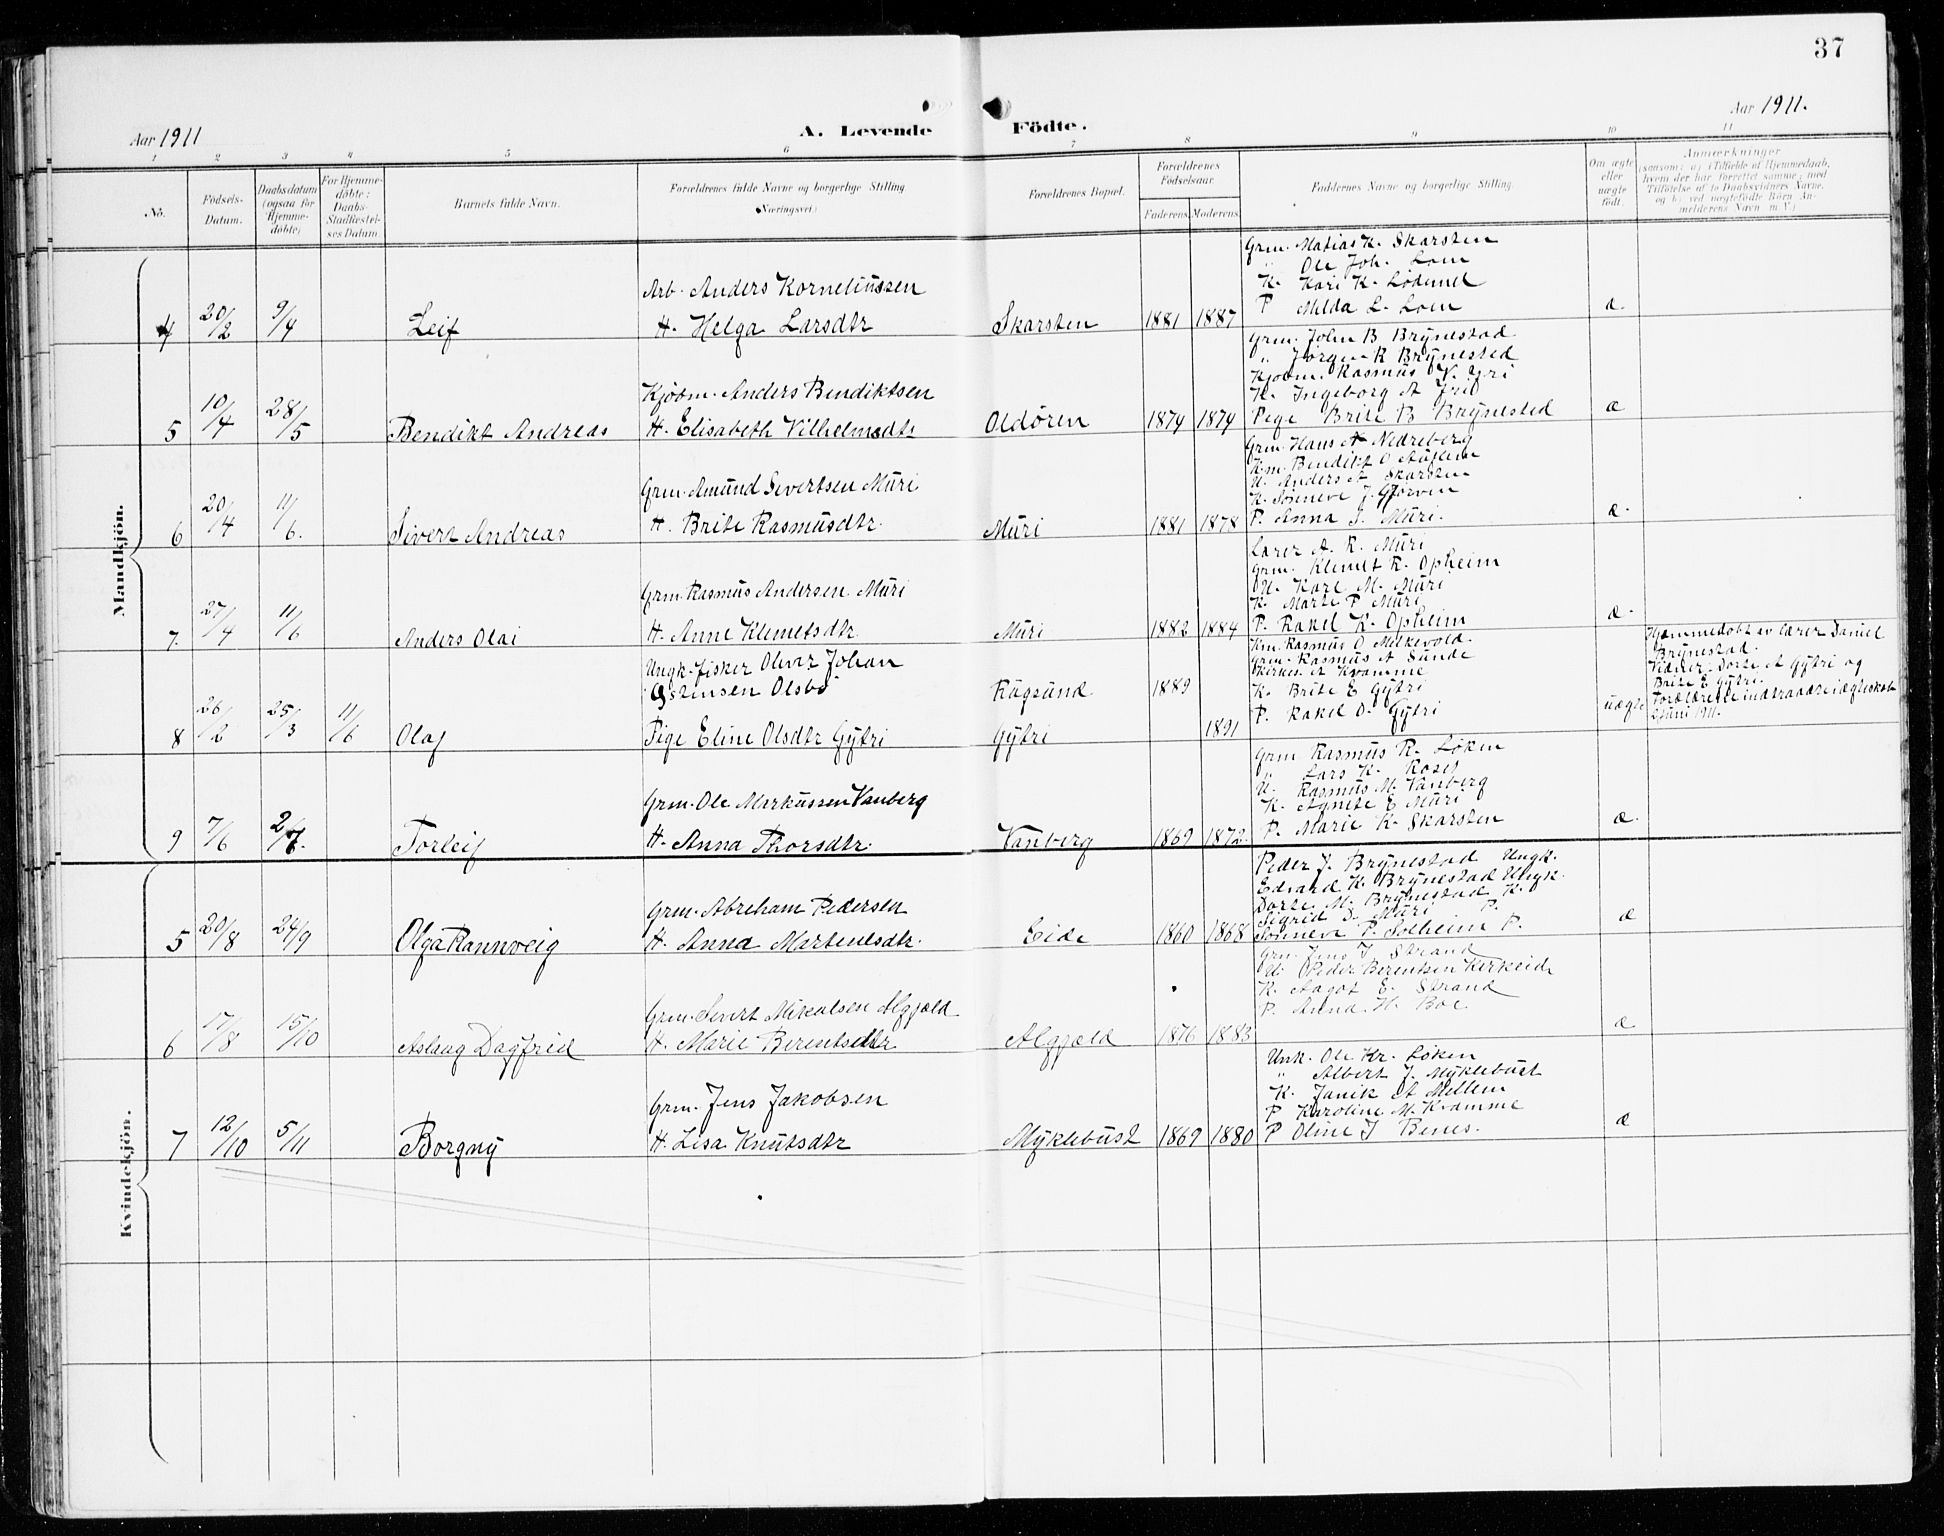 37
Aar 1911
A. Levende Födte.
Aar 1911.
1 2 3 4 5 6 7 8 9 10 11
No.
Födsels-Datum.
Daabsdatum (ogsaa for Hjemme-döbte)
For Hjemme-döbte: Daabs-Stadfæstel-ses Datum
Barnets fulde Navn.
Forældrenes fulde Navne og borgerlige Stilling (Næringsvei)
Forældrenes Bopæl.
Forældrenes Födselsaar.
Faderens
Moderens
Faddernes Navne og borgerlige Stilling.
Om ægte eller uægte födt.
Anmærkninger
(saasom: a) i Tilfælde af Hjemmedaab,
hvem der har forrettet samme, med
Tilföielse af to Daabsvidners Navne,
og b) ved uægtefödte Börn An-
melderens Navn m. V.)
Mandkjön.
4 20/2 9/4 Leif
Arb. Anders Korneliussen
H. Helga Larsdtr
Skarsten 1881 1887
Grm. Matias K. Skarsten
" Ole Joh. Loen
K. Kari K. Lödemel
P Milda L. Loen
æ.
5 10/4 28/5 Bendikt Andreas
Kjöbm. Anders Bendiktsen
H. Elisabeth Vilhelmsdtr
Oldören 1879 1879
Grm. John B Brynestad
" Jörgen R Brynestad
Kjöbm. Rasmus V. Yri
K. Ingeborg A Yri
Pige Brite B Brynestad
æ
6 20/4 11/6. Sivert Andreas
Grm. Amund Sivertsen Muri
H. Brite Rasmusdtr.
Muri 1881 1878
Grm. Hans A Nedreberg
Km. Bendikt O Auflem
U. Anders A Skarsten
K. Sönneve J. Gjörven
P. Anna S. Muri.
æ.
7. 27/4 11/6 Anders Olai
Grm. Rasmus Andersen Muri
H. Anne Klemetsdtr.
Muri 1882 1884
Lærer A. R. Muri
Grm. Klemet R. Opheim
U. Karl M. Muri
K. Marte P Muri
P. Rakel K. Opheim
æ.
8 26/2 25/3 11/6 Olaf
Ungk. fisker Oliver Johan
Östensen Olsbö
Pige Eline Olsdtr Gytri
Rugsund 1889
Gytri 1891
Km. Rasmus O Melkevold.
Grm. Rasmus A Sunde
Kirkes. A Kvamme
K. Brite E Gytri
P. Rakel O. Gytri
uægte
Hjemmedöbt av lærer Daniel
Brynestad.
Vidner: Dorte A Gytri og
Brite E Gytri.
Forældrene indtraadte i ægteskab
2 Juni 1911.
9 7/6 2/7. Torleif
Grm. Ole Markussen Vanberg
H. Anna Thorsdtr.
Vanberg 1869 1872.
Grm Rasmus R. Löken
" Lars K. Roset
U. Rasmus M. Vanberg
K. Agnete E Muri
P. Marie K. Skarsten
æ.
Kvindekjön.
5 20/8 24/9 Olga Rannveig
Grm. Abraham Pedersen
H. Anna Martensdtr.
Eide 1860 1868
Peder J. Brynestad Ungk.
Edvard K. Brynestad Ungk.
Dorte M. Brynestad K.
Sigrid S. Muri P.
Sönneve P. Solheim P.
æ
6 17/8 15/10 Aslaug Dagfrid
Grm. Sivert Mikalsen Algjæld
H. Marie Berentsdtr
Algjæld 1876 1883
Grm. Jens J Strand
U. Peder Berentsen Kirkeide
K. Aagot E. Strand
P. Anna H. Böe
æ
7 12/10 5/11 Borgny
Grm. Jens Jakobsen
H. Lisa Knutsdtr
Myklebust 1869 1880
Unk. Ole Kr. Löken
" Albert J. Myklebust
K. Janik A Mellem
P Karoline M. Kvamme
P Oline J Benes.
æ